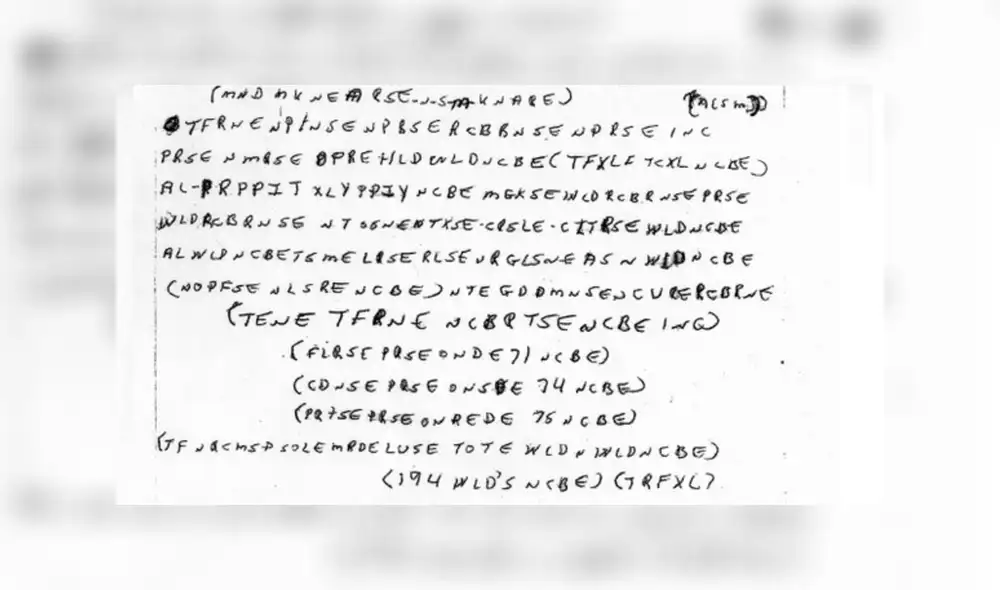 (MND MKNEARSE-N-S-M-KNARE) (ACSM)
TFRNENPINSENPBSERCBBNSENPRSEINC
PRSENMRSEOPREHLDWLDNCBE(TFXLFTCXLNCBE)
AL-PRPPITXLYPPIYNCBEMGKSEINCDRCBRNSEPRSE
WLDRCBRNSENTOSNENTXSE-CRSLE-CITRSEWLDNCBE
ALWLDNCBETSMELRSERLSENRGLSNEASNWLDNCBE
(NOPFSENLSRENCBE)NTEGDDMNSENCURERCBRNE
(TENETFRNENCBRTSENCBEINC)
(FLRSEPRSEONDE71NCBE)
(CDNSEPRSEONSDE74NCBE)
(PRTSEPRSEONREDE75NCBE)
(TFNQCMSPSOLEMRDELUSETOTEWLDNWLDNCBE)
(194WLD'SNCBE)(TRFXL)